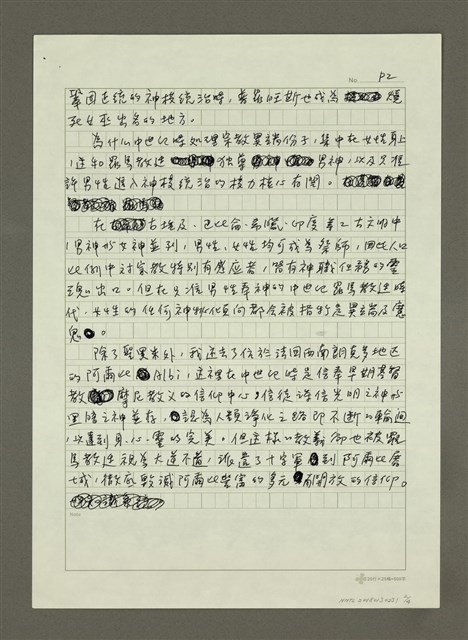 No. P2
鞏固正統的神權統治時，普羅旺斯也成為燒
死女巫出名的地方。
為什么中世紀時処理宗教異端份子，集中在女性身上
，這和羅馬教廷独尊男神，以及只准
許男性進入神權統治的權力核心有関。
在古埃及、巴比倫、希臘、印度等工古文明中
，男神与女神並列，男性、女性均可成為祭師，因此人
此例中対宗教特別有感应者，皆有神職任務的靈
魂出口。但在只准男性奉神的中世紀羅馬教廷時
代，女性的任何神秘化傾向都会被指称是異端及魔
鬼。
除了聖里米外，我还去了位於法国西南朗克多地区
的阿爾比 Albi，這裡在中世紀時是信奉早期基督
教摩尼教义的信仰中心，信徒深信光明之神与
黑暗之神並存，認為人類淨化之路即不断的輪迴
，以達到身心靈的完美。但這樣的教義卻也被羅
馬教廷視為大逆不道，派遣了十字軍到阿爾比屠
城，徹底毀滅阿爾比豐富的多元開放的信仰。